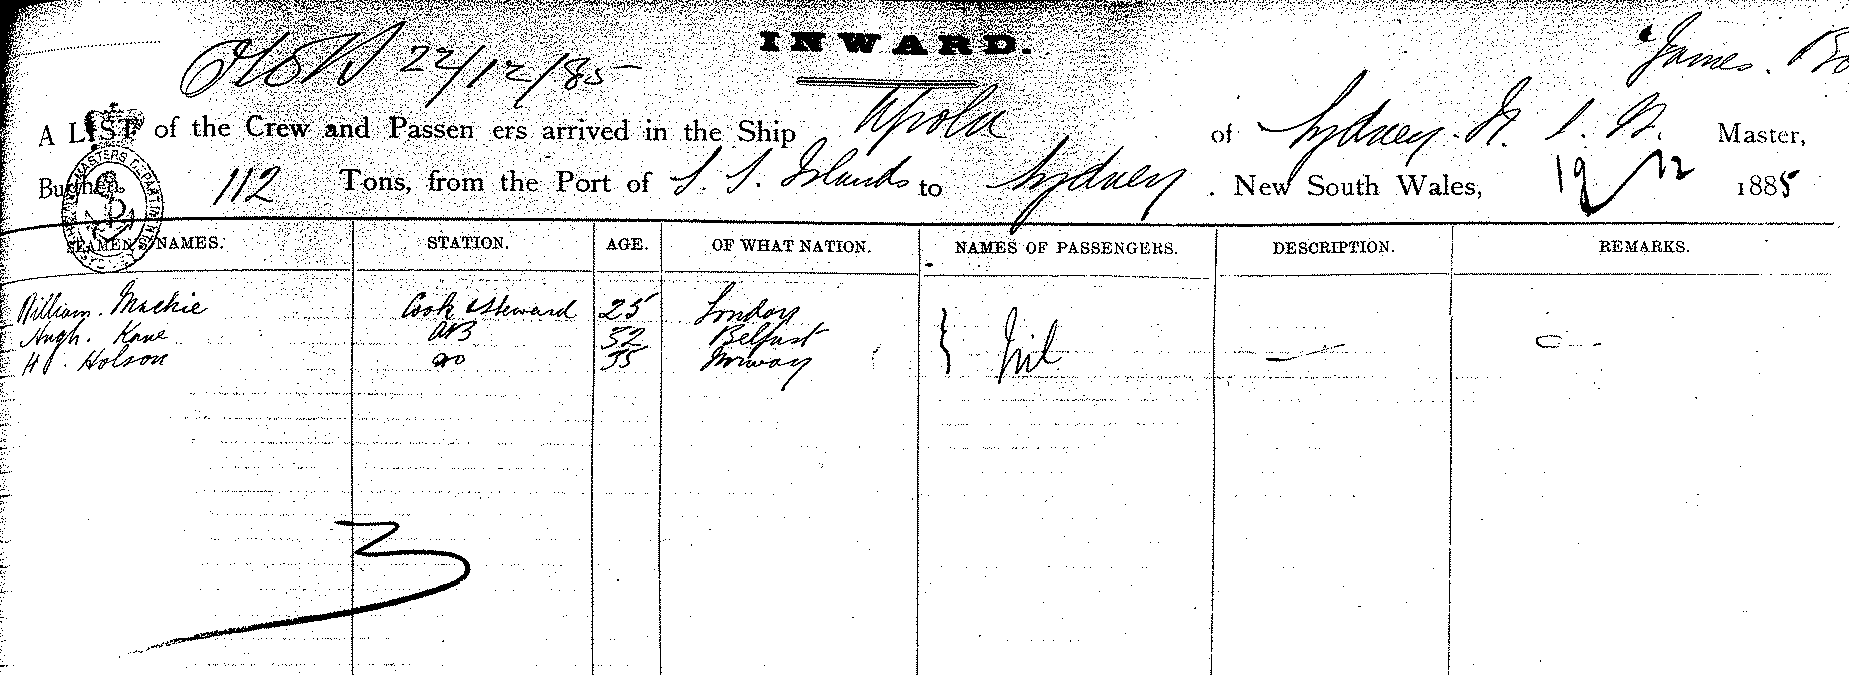 INWARD.
22/12/85
James.
A LIST of the Crew and Passen ers arrived in the Ship Upolu of Sydney. N. S. W. Master,
Burthen, 112 Tons, from the Port of S. S. Islands to Sydney. New South Wales, 19/12 1885
SEAMEN'S NAMES. STATION. AGE. OF WHAT NATION. NAMES OF PASSENGERS. DESCRIPTION. REMARKS.
William. Mackie Cook & Steward 25 London
Hugh. Kane AB 32 Belfast } Nil
H. Holson do 35 Norway
3